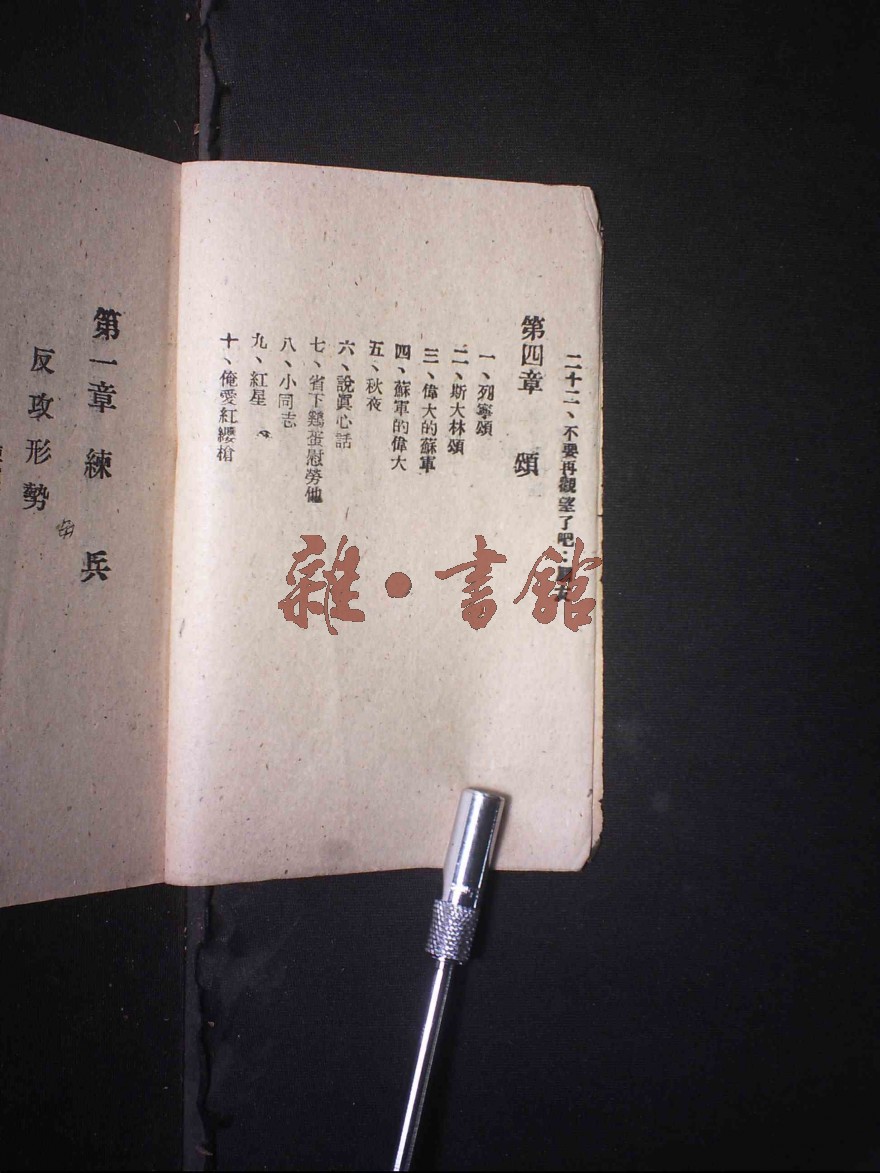 二十二、不要再觀望了吧：
第四章　頌
一、列寧頌
二、斯大林頌
三、偉大的蘇軍
四、蘇軍的偉大
五、秋夜
六、說眞心話
七、省下鷄蛋慰勞他
八、小同志
九、紅星
十、俺愛紅纓槍
第一章　練　兵
反攻形勢
雜·書館